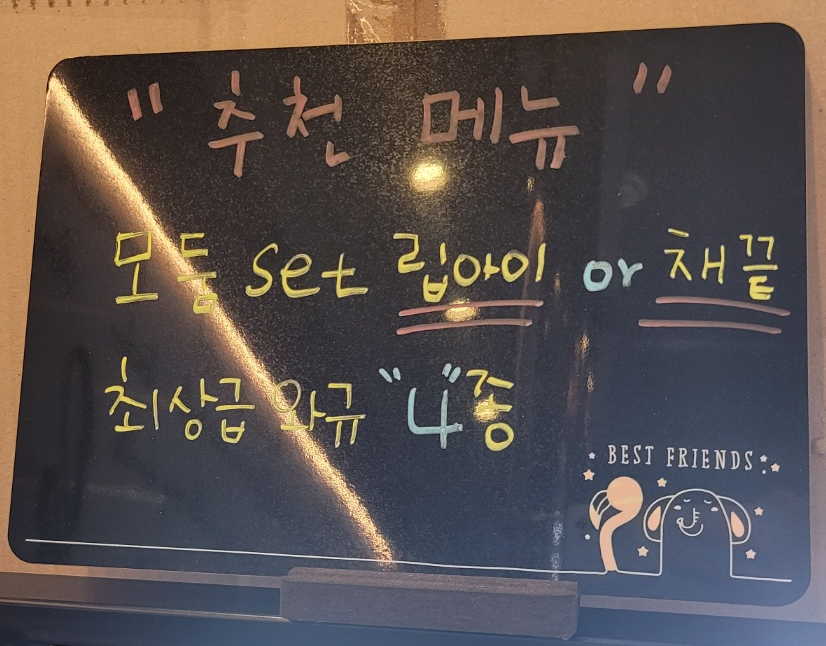 " 추천 메뉴 "
모둠 set 립아이 or 채끝
최상급 와규 "4"종
BEST FRIENDS